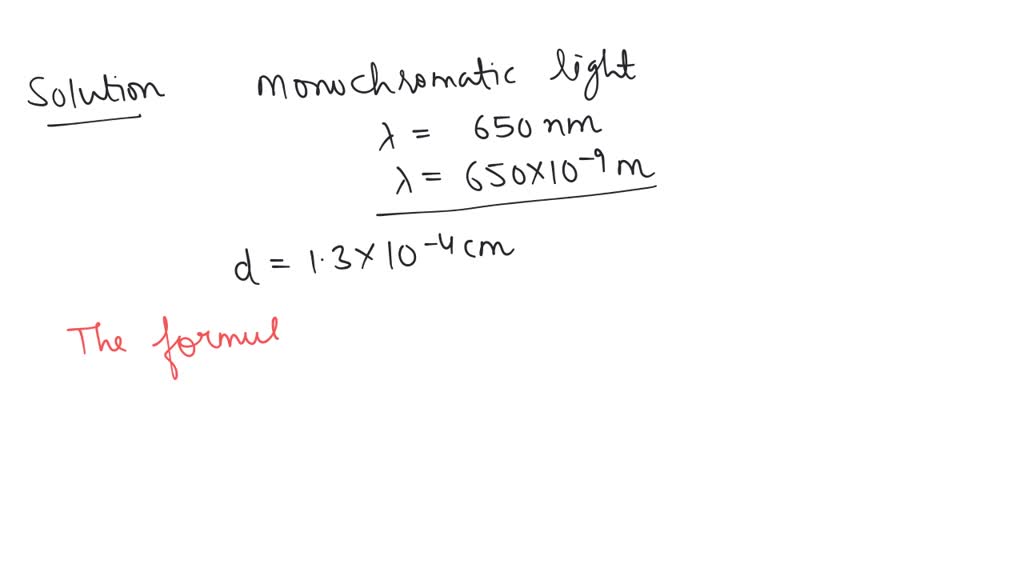 Solution Monochromatic light
λ = 650 nm
λ = 650×10⁻⁹ m
d = 1.3×10⁻⁴ cm
The formul